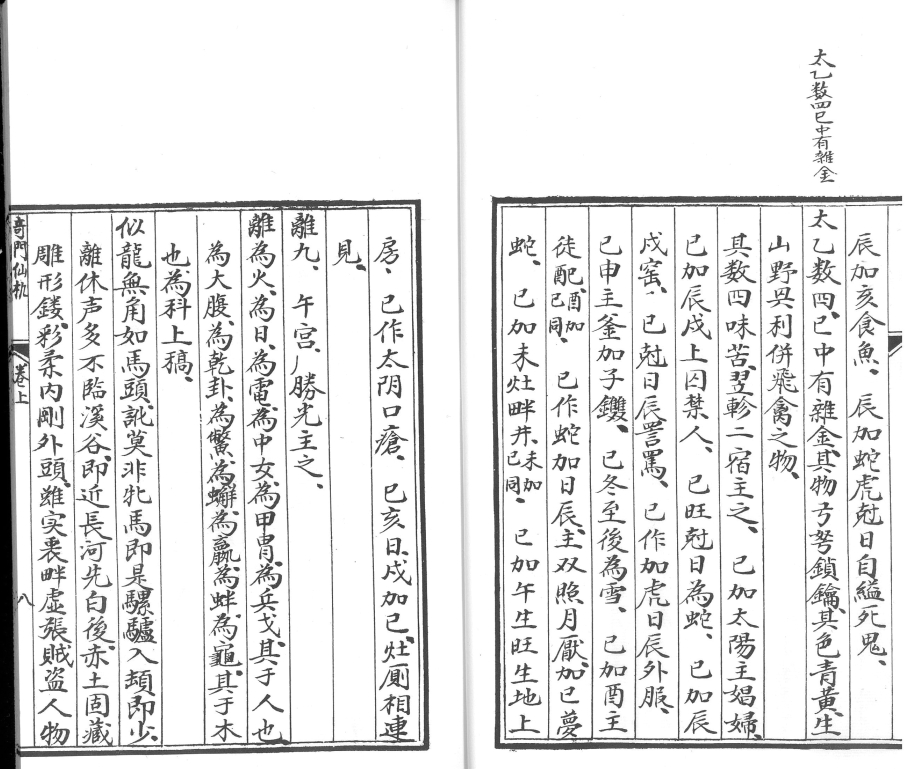 太乙数四巳中有雜金
辰加亥食魚、辰加蛇虎尅日自縊死鬼、
太乙数四、巳中有雜金、其物弓弩鎖鑰、其色青黄、生
山野興利併飛禽之物、
其数四味苦、翌軫二宿主之、 巳加太陽主娼婦、
巳加辰戌上囚禁人、 巳旺尅日為蛇、 巳加辰
戌窑、 巳尅日辰詈罵、 巳作虎日辰外服、
巳申主釜加子鑊、 巳冬至後為雪、 巳加酉主
徒配、酉加巳同、 巳作蛇加日辰、主双照月厭、加巳夢
蛇、 巳加未灶畔井、未加巳同、 巳加午生旺生地上
房、巳作太阴口瘡、 巳亥日、戌加巳、灶厕相連
見、
離九、 午宫、勝光主之、
離為火、為日、為電、為中女、為甲胄、為兵戈、其于人也
為大腹、為乾卦、為鱉、為蠏、為蠃、為蚌、為龜、其于木
也、為科上稿、
似龍無角如馬頭、訛莫非牝馬即是騾驢入頡即少、
離休声多不臨溪谷、即近長河先白後赤、土固藏
雕形鏤彩柔内剛外頭、雖实裹畔虚張、賊盗人物
奇門仙机 卷上 八